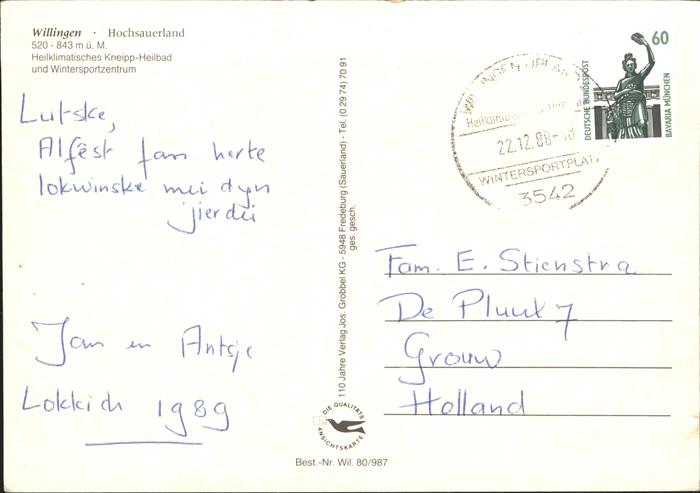 Willingen · Hochsauerland
520 - 843 m ü. M.
Heilklimatisches Kneipp-Heilbad
und Wintersportzentrum
Lutske,
Alfêst fan herte
lokwinske mei dyn
jierdei
Jan en Antsje
Lokkich 1989
110 Jahre Verlag Jos. Grobbel KG · 5948 Fredeburg (Sauerland) · Tel. (0 29 74) 70 91
ges. gesch.
DIE QUALITÄTS
ANSICHTSKARTE
Best.-Nr. Wil. 80/987
60
DEUTSCHE BUNDESPOST
BAVARIA MÜNCHEN
22.12.88
WINTERSPORTPLATZ
3542
Fam. E. Stienstra
De Pluut 7
Grouw
Holland